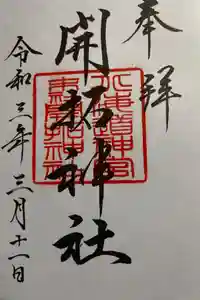 奉拝
開拓神社
北海道神宮
末社開拓神社
令和三年三月十一日